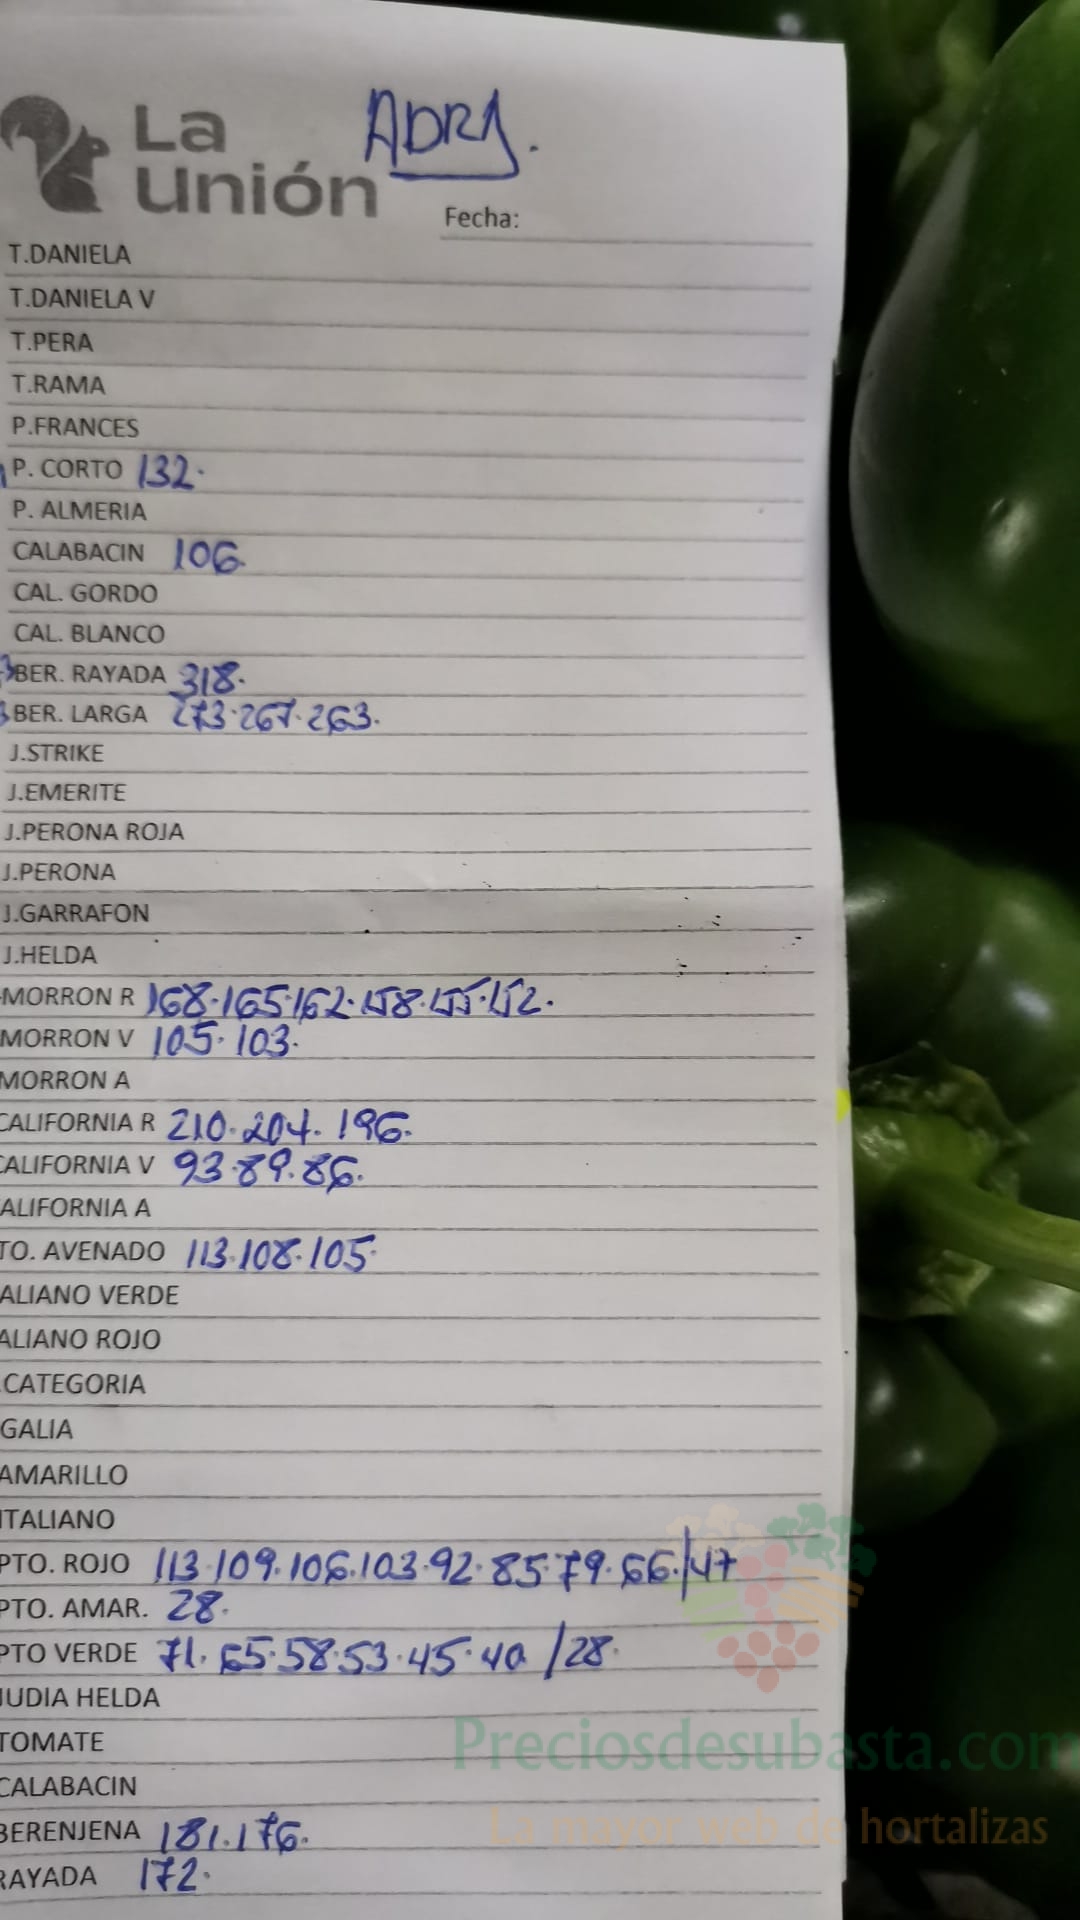 La
Unión
ADRA.
Fecha:
T.DANIELA
T.DANIELA V
T.PERA
T.RAMA
P.FRANCES
P. CORTO 132.
P. ALMERIA
CALABACIN 106.
CAL. GORDO
CAL. BLANCO
BER. RAYADA 318.
BER. LARGA 273.267.263.
J.STRIKE
J.EMERITE
J.PERONA ROJA
J.PERONA
J.GARRAFON
J.HELDA
MORRON R 168.165.162.158.155.152.
MORRON V 105.103.
MORRON A
CALIFORNIA R 210.204.196.
CALIFORNIA V 93.89.86.
ALIFORNIA A
TO. AVENADO 113.108.105.
ALIANO VERDE
ALIANO ROJO
CATEGORIA
GALIA
AMARILLO
ITALIANO
PTO. ROJO 113.109.106.103.92.85.79.66./47
PTO. AMAR. 28.
PTO VERDE 71.65.58.53.45.40/28.
JUDIA HELDA
TOMATE
CALABACIN
BERENJENA 181.176.
RAYADA 172.
Preciosdesubasta.com
La mayor web de hortalizas